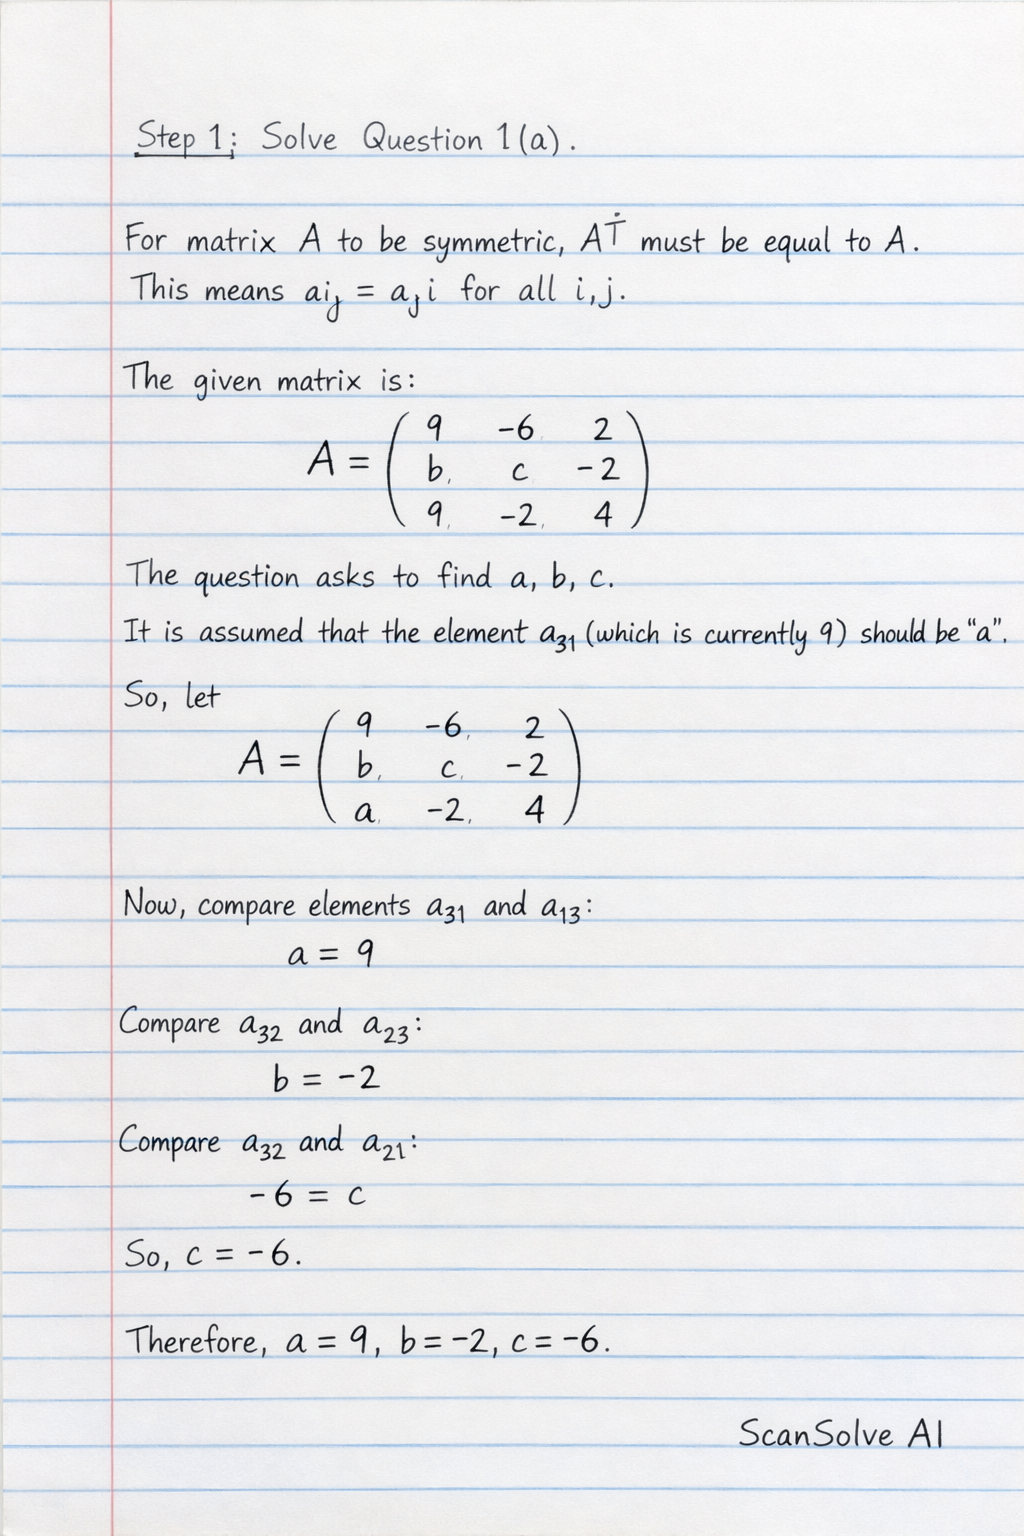 Step 1; Solve Question 1(a).
For matrix A to be symmetric, AṪ must be equal to A.
This means aij = aji for all i,j.
The given matrix is:
A = ( 9 -6 2
b, c -2
9, -2, 4 )
The question asks to find a, b, c.
It is assumed that the element a₃₁ (which is currently 9) should be "a".
So, let
A = ( 9 -6, 2
b, c, -2
a, -2, 4 )
Now, compare elements a₃₁ and a₁₃:
a = 9
Compare a₃₂ and a₂₃:
b = -2
Compare a₃₂ and a₂₁:
-6 = c
So, c = -6.
Therefore, a = 9, b = -2, c = -6.
ScanSolve AI